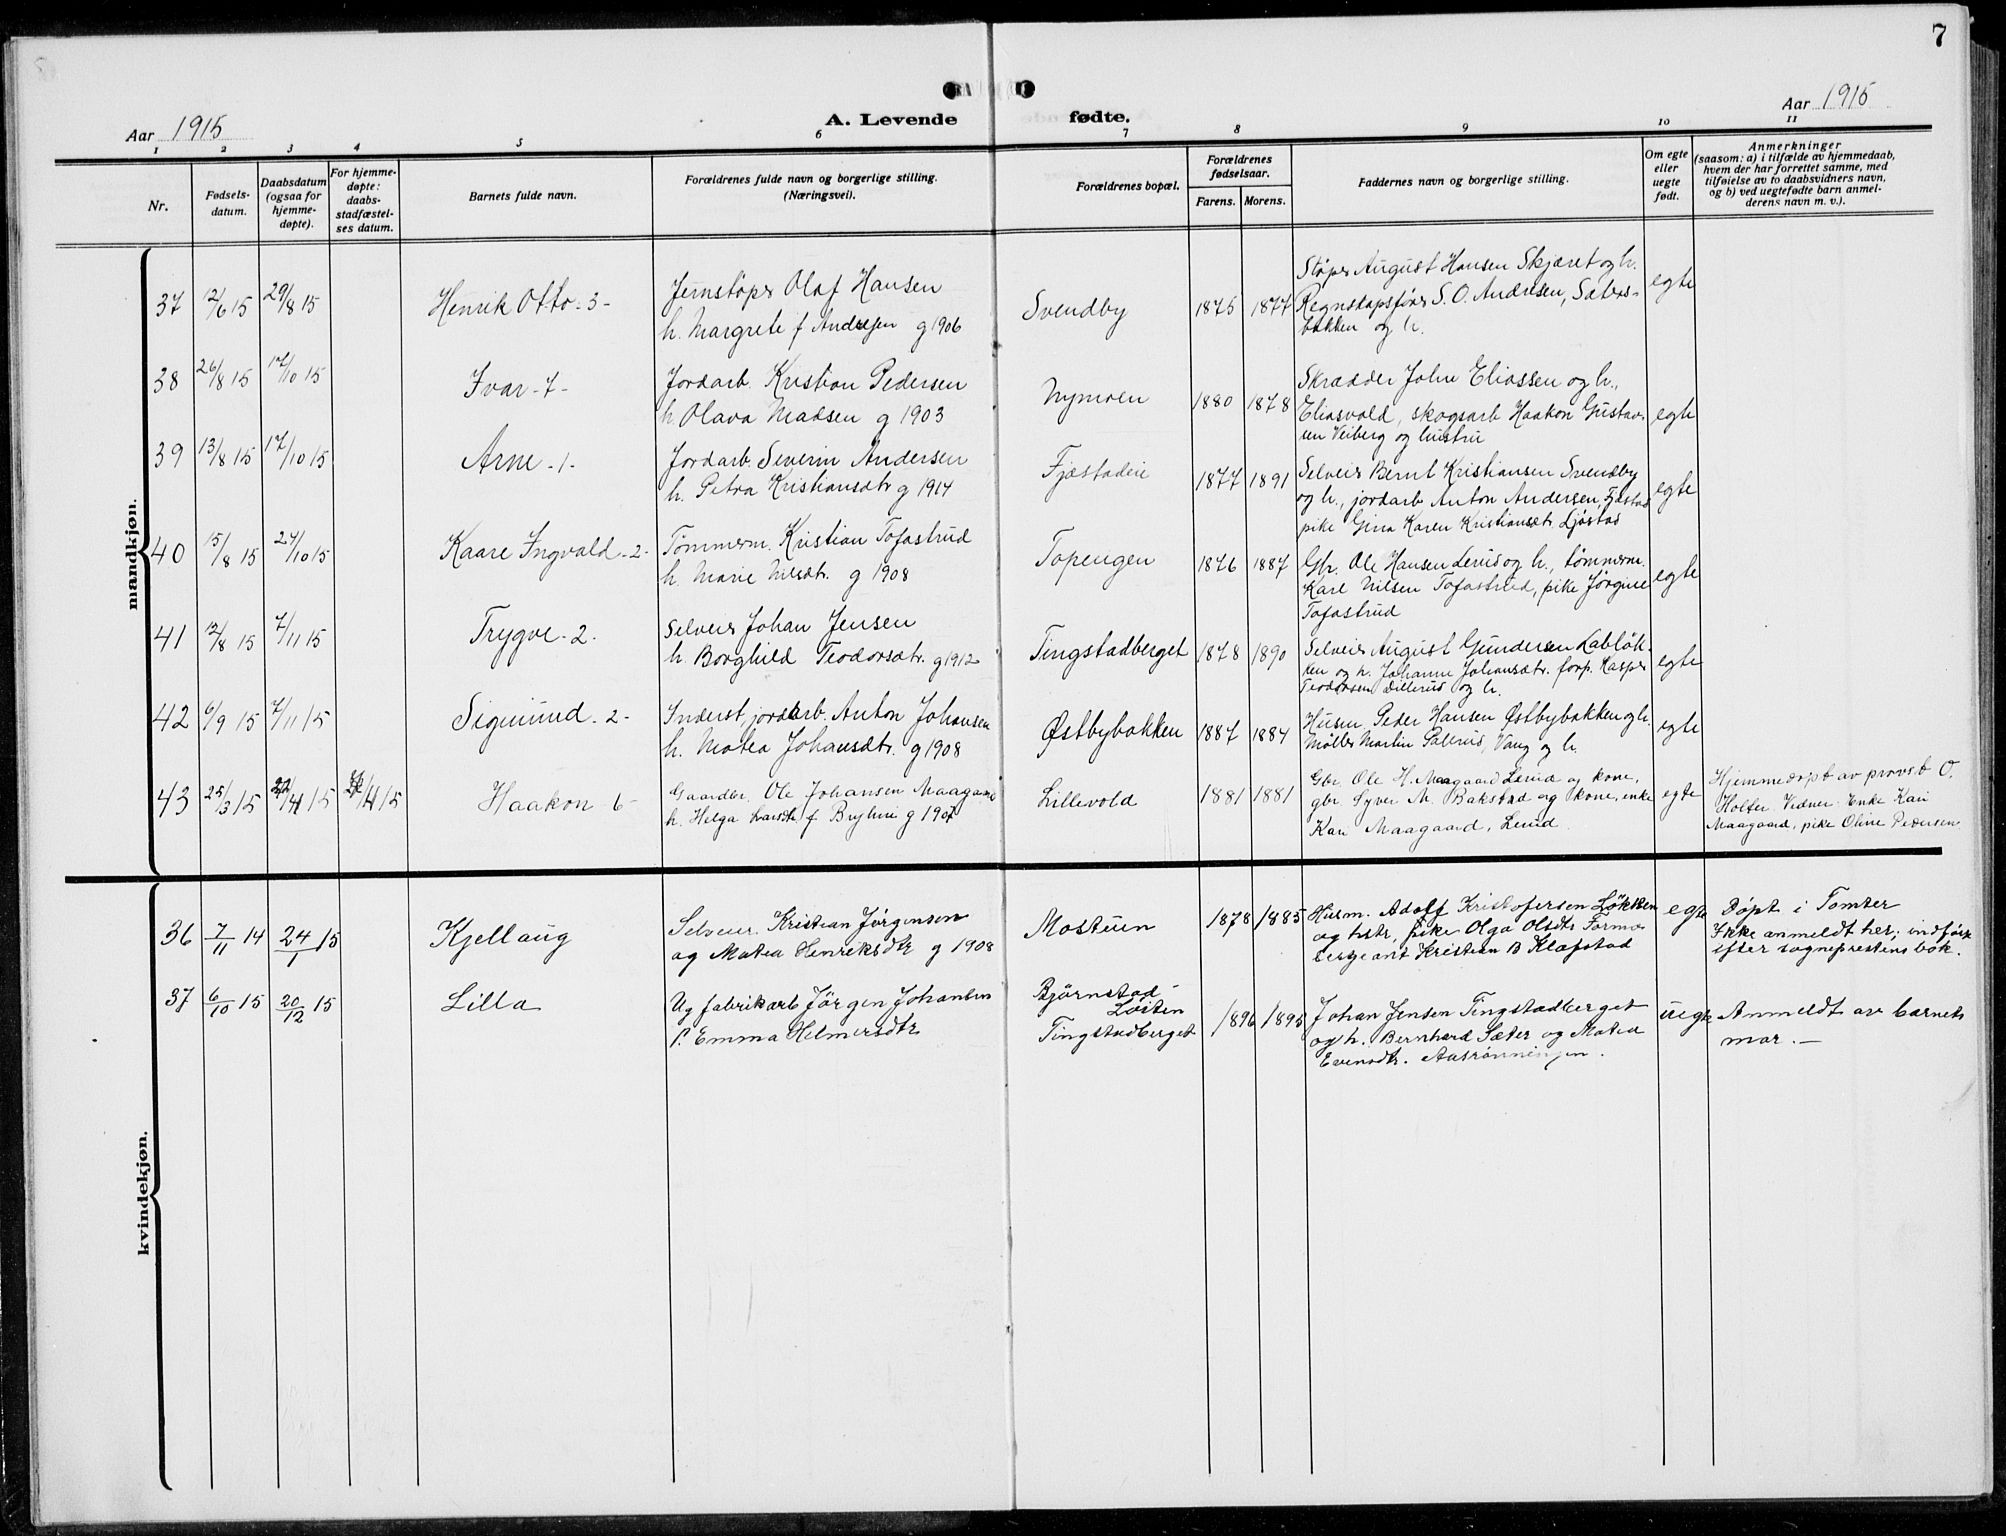 7
Aar 1915
A. Levende
fødte.
Aar 1915
1 2 3 4 5 6 7 8 9 10 11
Nr.
Fødsels-
datum.
Daabsdatum
(ogsaa for
hjemme-
døpte).
For hjemme-
døpte:
daabs-
stadfæstel-
ses datum.
Barnets fulde navn.
Forældrenes fulde navn og borgerlige stilling.
(Næringsvei).
Forældrenes bopæl.
Forældrenes
fødselsaar.
Farens. Morens.
Faddernes navn og borgerlige stilling.
Om egte
eller
uegte
født.
Anmerkninger
(saasom: a) i tilfælde av hjemmedaab,
hvem der har forrettet samme, med
tilføielse av to daabsvidners navn,
og b) ved uegtefødte barn anmel-
derens navn m. v.).
mandkjøn.
37 2/6 15 29/8 15 Henrik Otto - 3 -
Jernstøper Olaf Hansen
h. Margrete f Andresen g 1906
Svendby 1875 1877
Støper August Hansen Skjæret og h.
Regnskapsfører S. O. Andresen, Sæters-
bakken og h.
egte
38 26/8 15 17/10 15 Ivar - 7 -
Jordarb. Kristian Pedersen
h. Olava Madsen g 1903
Nymoen 1880 1878
Skrædder John Eliassen og h.,
Eliasvold, skogsarb Haakon Gustav-
sen Veiberg og hustru
egte
39 13/8 15 17/10 15 Arne - 1 -
Jordarb. Severin Andersen
h. Petra Kristiansdtr g 1914
Fjæstadeie 1877 1891
Selveier Bernt Kristiansen Svendby
og h., jordarb Anton Andersen, Fjæstad
pike Gina Karen Kristiansdtr. Ljøstad
egte
40 15/8 15 24/10 15 Kaare Ingvald - 2 -
Tømmerm. Kristian Tofastrud
h. Marie Nilsdtr. g 1908
Topengen 1876 1887
Gbr. Ole Hansen Lerud og h., tømmerm.
Karl Nilsen Tofastrud, pike Jørgine
Tofastrud
egte
41 12/8 15 7/11 15 Trygve - 2 -
Selveier Johan Jensen
h. Borghild Teodorsdtr. g 1912
Tingstadberget 1878 1890
Selveier August Gundersen Labløk-
ken og h. Johanne Johansdtr. forp. Kasper
Teodorsen Dillerud og h.
egte
42 6/9 15 7/11 15 Sigmund - 2 -
Inderst, jordarb. Anton Johansen
h. Matea Johansdtr. g 1908
Østbybakken 1887 1884
Husm Peder Hansen Østbybakken og h.
Møller Martin Pallrud, Vang og h.
egte
43 25/3 15 /4 15 /4 15 Haakon 6 -
Gaardbr. Ole Johansen Maagaard
h. Helga Larsdtr f Bryhni g 1907
Lillevold 1881 1881
Gbr. Ole H. Maagaard Lerud og kone,
gbr Syver M. Bakstad og kone, enke
Kari Maagaard, Lerud
egte
Hjemmedøpt av provst O.
Holter. Vidner: Enke Kari
Maagaard, pike Oline Pedersen
kvindekjøn.
36 7/11 14 24/1 15 Kjellaug
Selveier. Kristian Jørgensen
og Matea Henriksdtr g 1908
Mostuen 1878 1885
Husm. Adolf Kristofersen Løkken
og hstr, pike Olga Olsdtr Formo
sergeant Kristian B Klafstad
egte
Døpt i Tomter
Ikke anmeldt her; indført
efter sogneprestens bok.
37 6/10 15 20/12 15 Lilla
Ug fabrikarb Jørgen Johansen
p. Emma Helmersdtr
Bjørnstad
Løiten
Tingstadberget
1896 1895
Johan Jensen Tingstadberget
og h. Bernhard Sæter og Matea
Evensdtr. Aasrønningen.
uegte
Anmeldt av barnets
mor. —